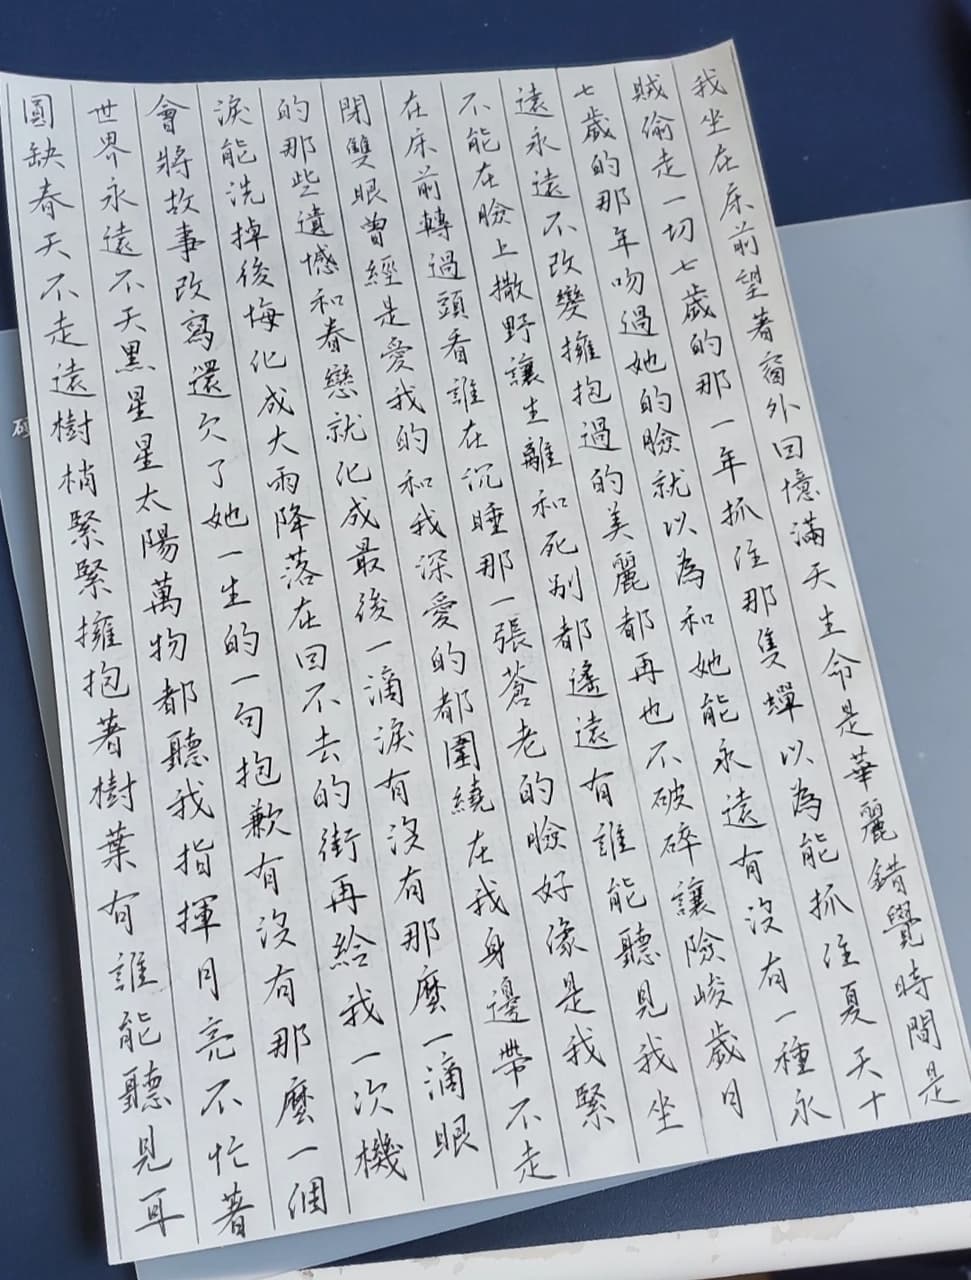 我坐在床前望著窗外回憶滿天生命是華麗錯覺時間是
賊偷走一切七歲的那一年抓住那隻蟬以為能抓住夏天十
七歲的那年吻過她的臉就以為和她能永遠有沒有一種永
遠永遠不改變擁抱過的美麗都再也不破碎讓險峻歲月
不能在臉上撒野讓生離和死別都遙遠有誰能聽見我坐
在床前轉過頭看誰在沉睡那一張蒼老的臉好像是我緊
閉雙眼曾經是愛我的和我深愛的都圍繞在我身邊帶不走
的那些遺憾和眷戀就化成最後一滴淚有沒有那麼一滴眼
淚能洗掉後悔化成大雨降落在回不去的街再給我一次機
會將故事改寫還欠了她一生的一句抱歉有沒有那麼一個
世界永遠不天黑星星太陽萬物都聽我指揮月亮不忙著
圓缺春天不走遠樹梢緊緊擁抱著樹葉有誰能聽見耳